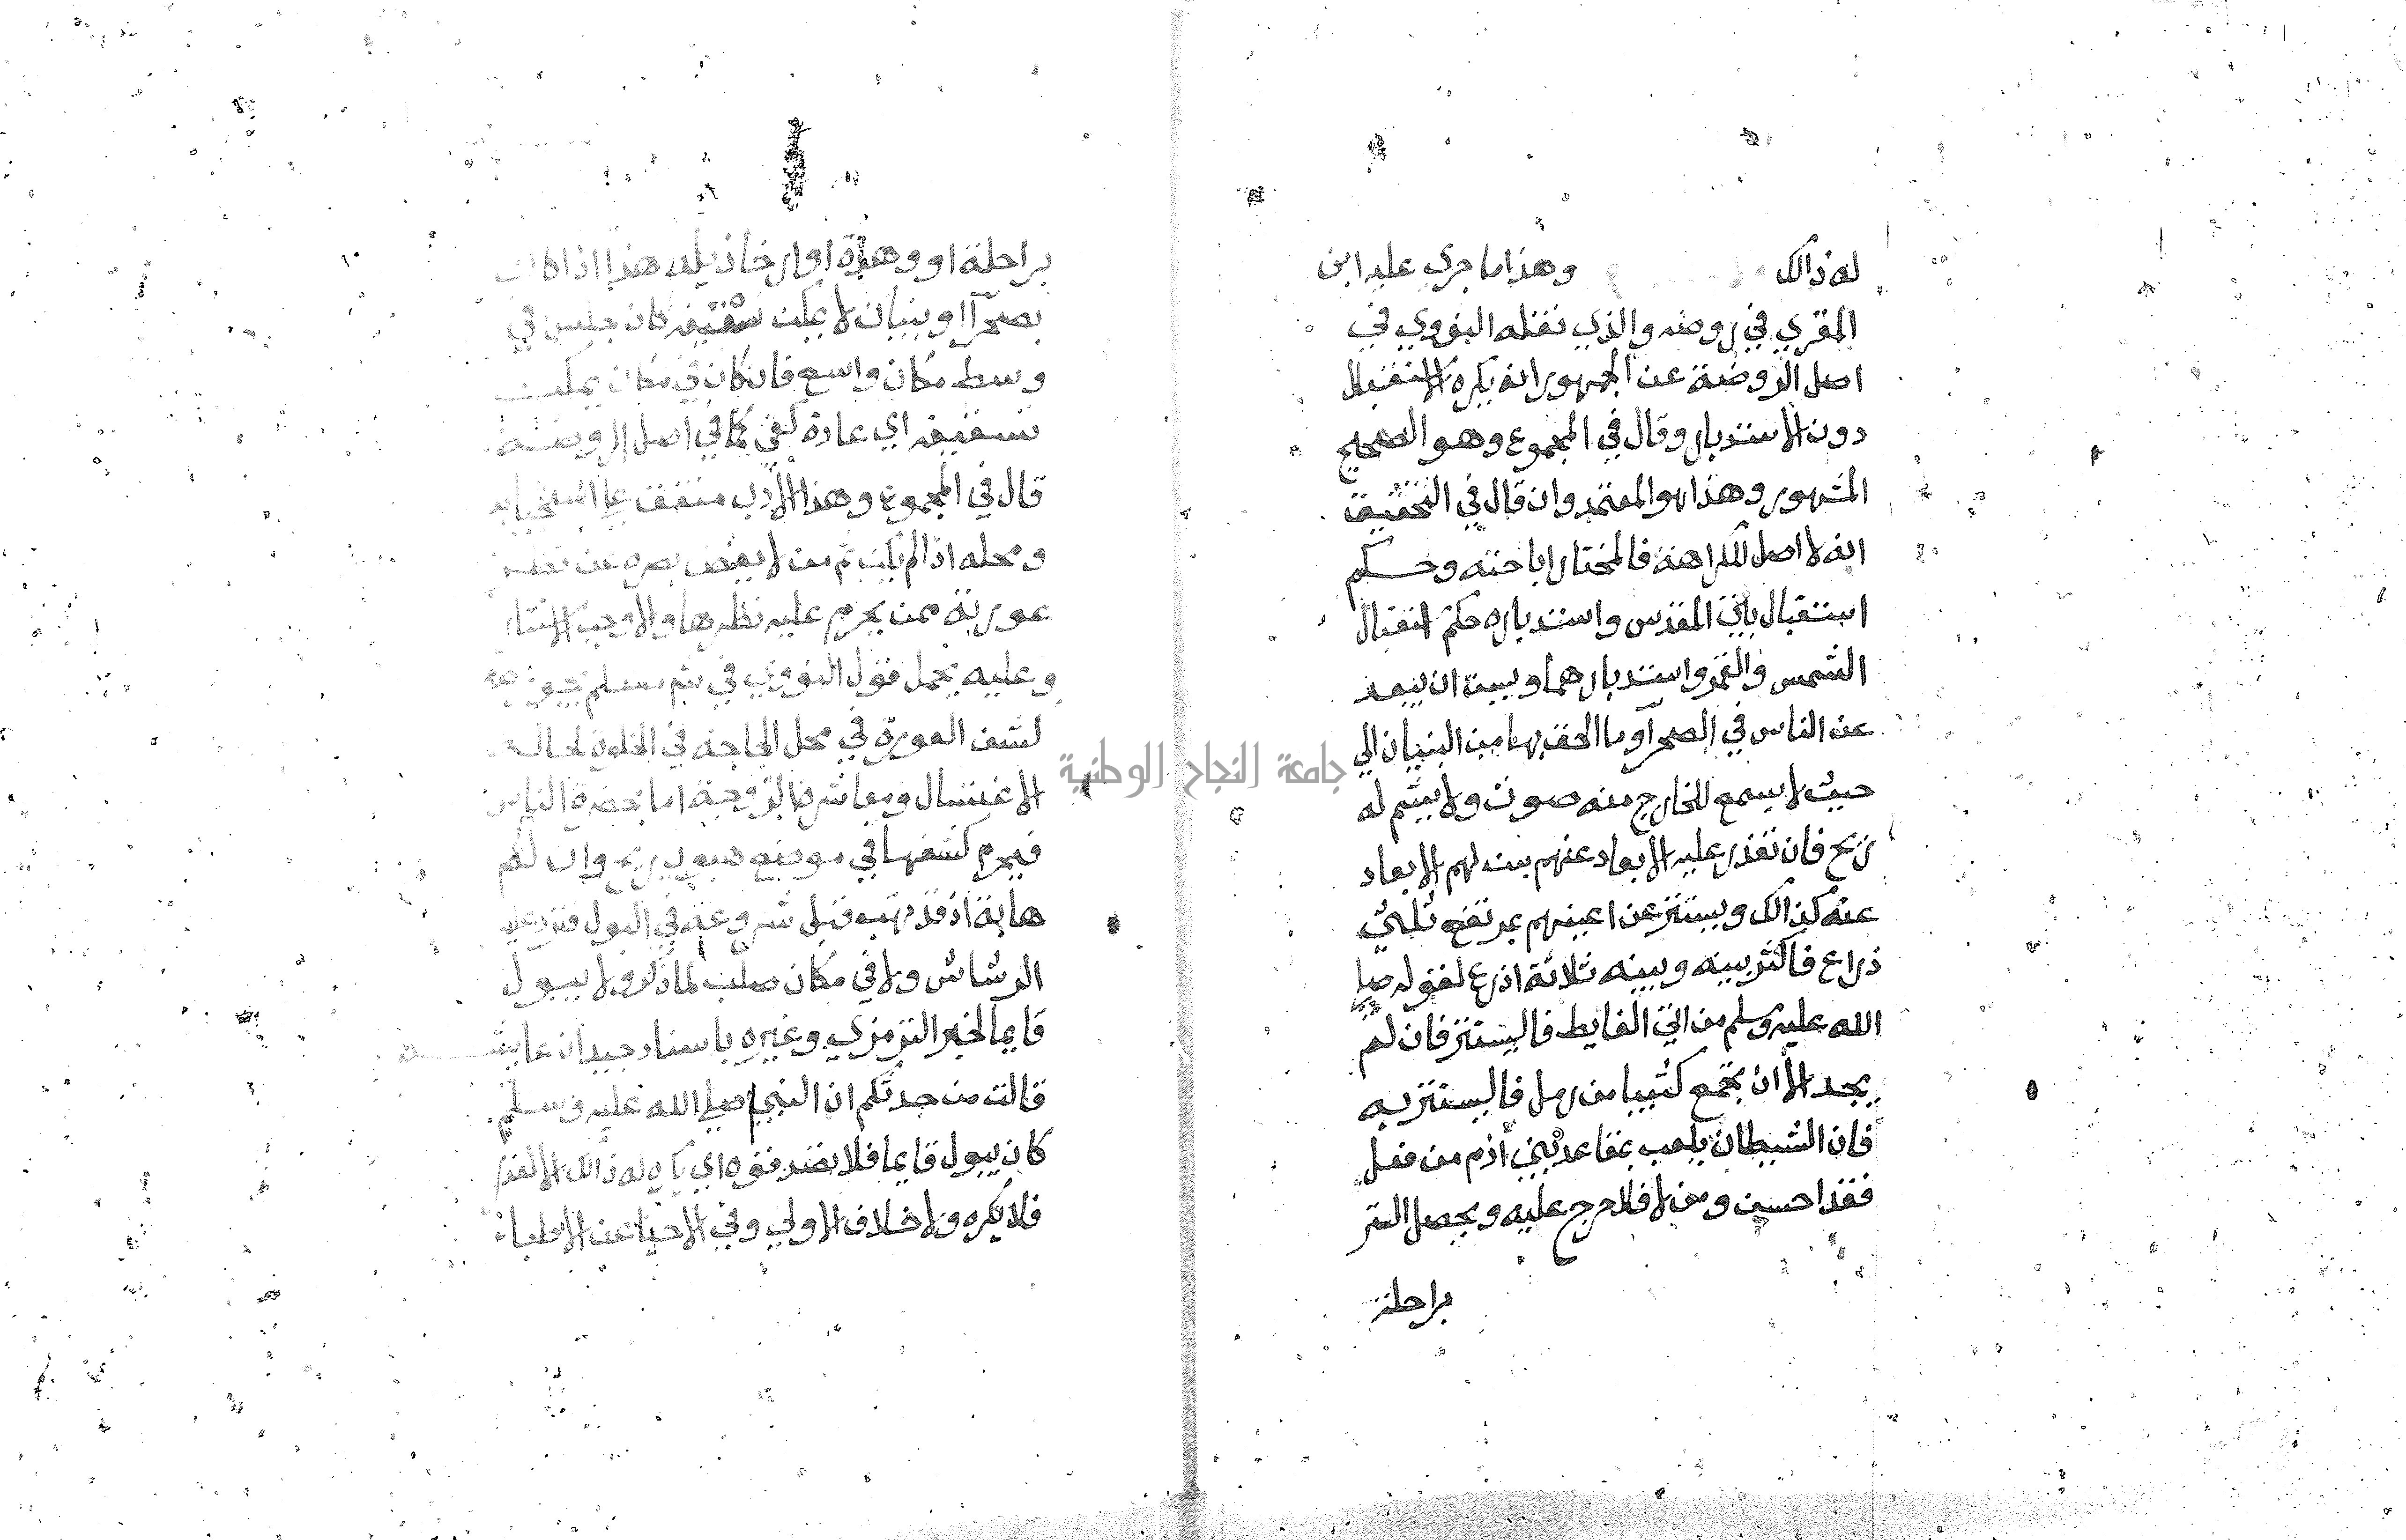 له ذالك وهذا ما جري عليه ابن
المقري في روضه والذي نقله النووي في
اصل الروضة عن الجمهور انه يكره الاستقبال
دون الاستدبار وقال في المجموع وهو الصحيح
المشهور وهذا هو المعتمد وان قال في التحقيق
انه لا اصل للكراهة فالمختار اباحته وحكم
استقبال بيت المقدس واستدباره حكم استقبال
الشمس والقمر واستدبارهما ويسن ان يبعد
عن الناس في الصحرآ وما الحق بها من البنيان الي
حيث لا يسمع للخارج منه صوت ولا يشم له
ريح فان تعذر عليه الابعاد عنهم سن لهم الابعاد
عنه كذالك ويستتر عن اعينهم بمرتفع ثلثي
ذراع فاكثر بينه وبينه ثلاثة اذرع لقوله صلي
الله عليه وسلم من اتي الغايط فاليستتر فان لم
يجد الا ان يجمع كثيبا من رمل فاليستتر به
فان الشيطان يلعب بمقاعد بني اذم من فعل
فقد احسن ومن لا فلا حرج عليه ويحصل الستر
براحلة
براحلة او وهدة او ارخا ذيله هذا اذا كان
بصحرآ او بنيان لا يمكن تسقيفه كان جلس في
وسط مكان واسع فان كان في مكان يمكن
تسقيفه اي عادة كفي كما في اصل الروضة
قال في المجموع وهذا الادب متفق علي استحبابه
ومحله اذا لم يكن ثم من لا يغض بصره عن نظر
عورته ممن يحرم عليه نظرها والا وجب الاستتار
وعليه يحمل قول النووي في شرح مسلم يجوز
كشف العورة في محل الحاجة في الخلوة لحالة
الاغتسال ومعاشرة الزوجة اما بحضرة الناس
فيحرم كشفها في موضع هبوب ريح وان لم
هابة اذ قد تهب قبل شروعه في البول فترد عليه
الرشاش ولا في مكان صلب لما ذكر ولا يبول
قايما لخبر الترمزي وغيره باسناد جيد ان عايشة
قالت من حدثكم ان النبي صلي الله عليه وسلم
كان يبول قايما فلا تصدقوه اي يكره له ذالك الا لعذر
فلا يكره ولا خلاف الاولي وفي الاحيا عن الاطباء
جامعة النجاح الوطنية